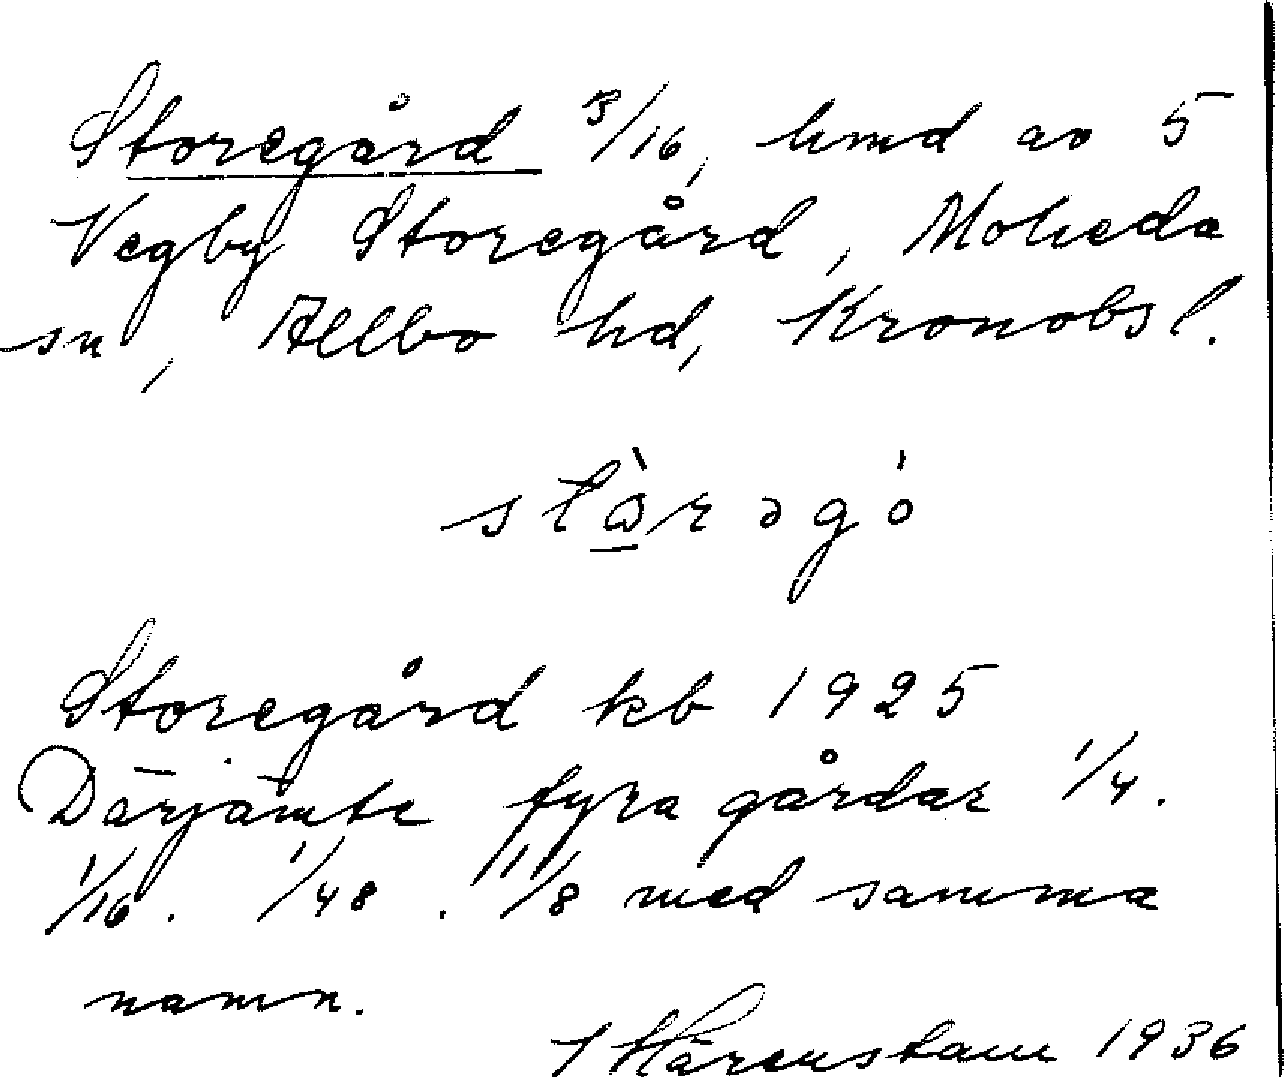 Storegård 3/16, hmd av 5
Vegby Storegård, Moheda
sn, Allbo hd, Kronobsl.
Storegård kb 1925
Därjämte fyra gårdar 1/4.
1/16. 1/48. 1/8 med samma
namn.
Härenstam 1936